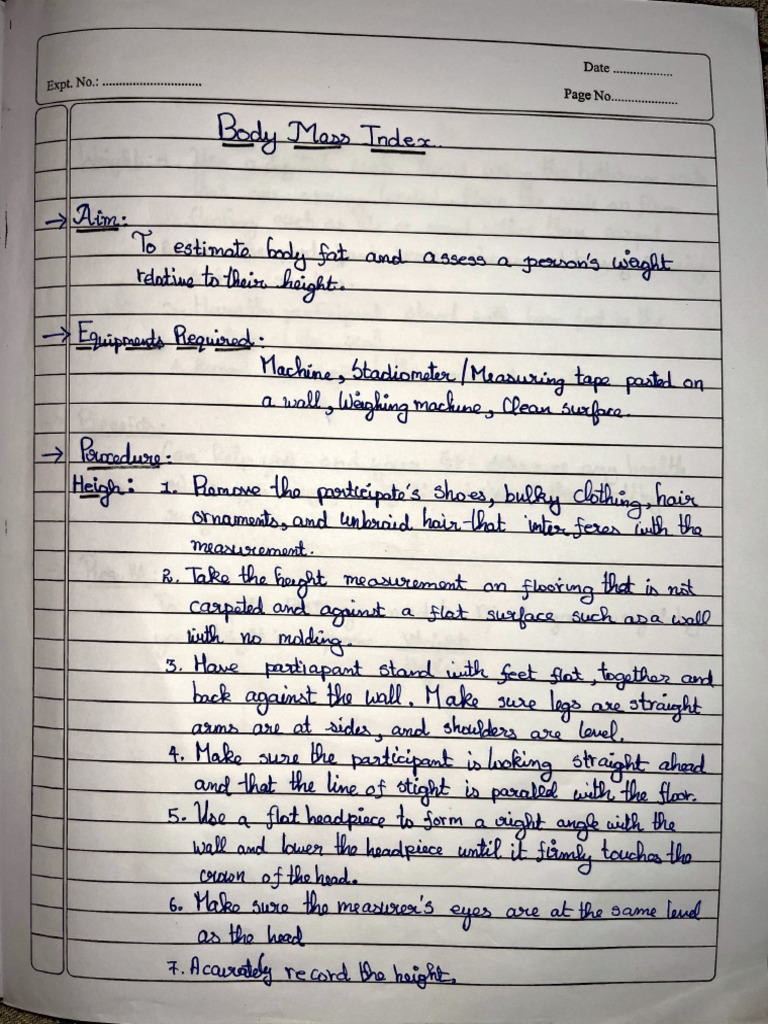 Date ..................
Expt. No.: .............................
Page No....................
Body Mass Index.
→ Aim:
To estimate body fat and assess a person's weight
relative to their height.
→ Equipments Required:
Machine, Stadiometer / Measuring tape pasted on
a wall, Weighing machine, Clean surface.
→ Procedure:
Heigh: 1. Remove the participate's shoes, bulky clothing, hair
ornaments, and unbraid hair that interferes with the
measurement.
2. Take the height measurement on flooring that is not
carpeted and against a flat surface such as a wall
with no molding.
3. Have participant stand with feet flat, together and
back against the wall. Make sure legs are straight
arms are at sides, and shoulders are level.
4. Make sure the participant is looking straight ahead
and that the line of stight is parallel with the floor.
5. Use a flat headpiece to form a right angle with the
wall and lower the headpiece until it firmly touches the
crown of the head.
6. Make sure the measurer's eyes are at the same level
as the head
7. Accurately record the height.